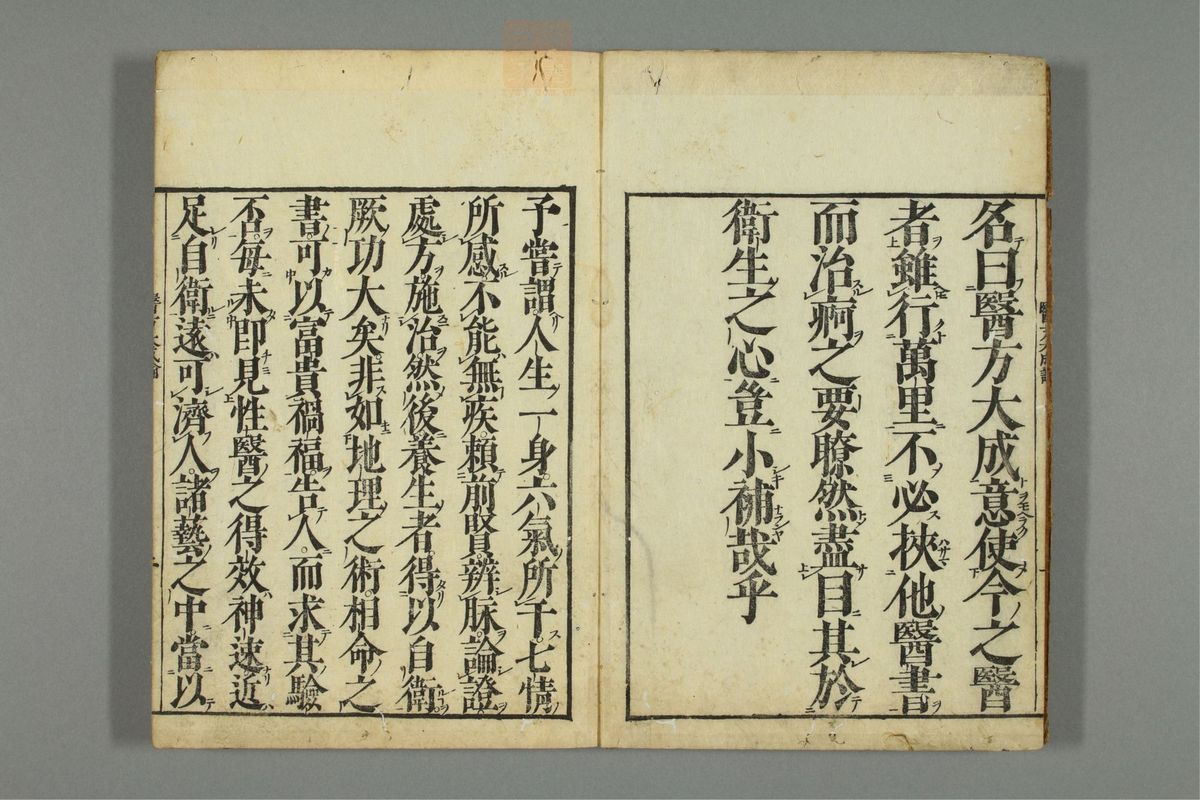 名曰醫方大成意使今之醫
者雖行萬里不必挾他醫書
而治痾之要瞭然盡目其於
衛生之心豈小補哉乎
予嘗謂人生一身六氣所干七情
所感不能無疾賴前賢辨脉論證
處方施治然後養生者得以自衛
厥功大矣非如地理之術相命之
書可以富貴禍福告人而求其驗
否每未即見性醫之得效神速近
足自衛遠可濟人諸藝之中當以